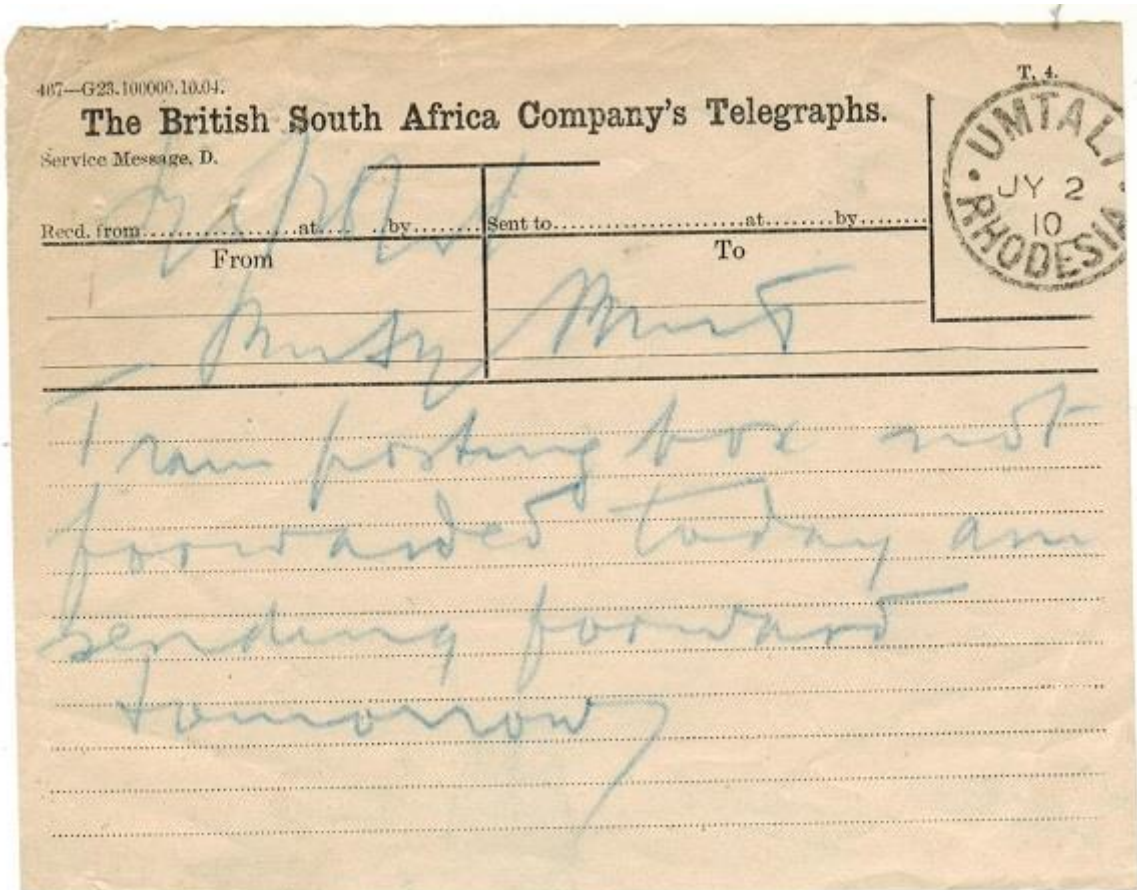 467—G23.100000.10.04.
T. 4.
The British South Africa Company's Telegraphs.
Service Message, D.
UMTALI
JY 2
10
RHODESIA
Recd. from....................at.... ..by........
Sent to........................at........by........
From
To
Train posting box not
forwarded today am
sending forward
tomorrow